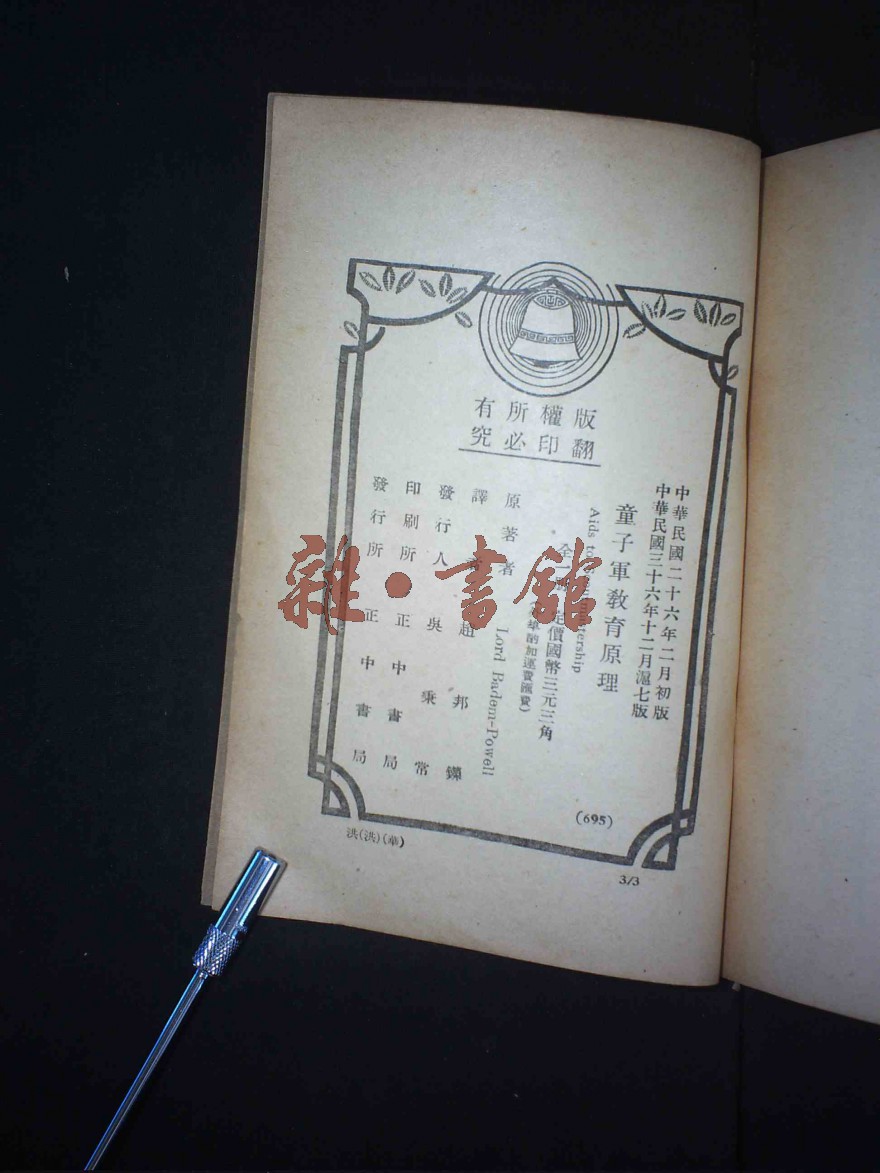 版權所有
翻印必究
中華民國二十六年二月初版
中華民國三十六年十二月滬七版
童子軍教育原理
Aids to Scoutmastership
全一冊 定價國幣三元三角
酌加運費匯費)
原著者 Lord Badem-Powell
譯者 趙邦鑅
發行人 吳秉常
印刷所 正中書局
發行所 正中書局
(695)
洪(洪)(華)
3/3
雜·書館